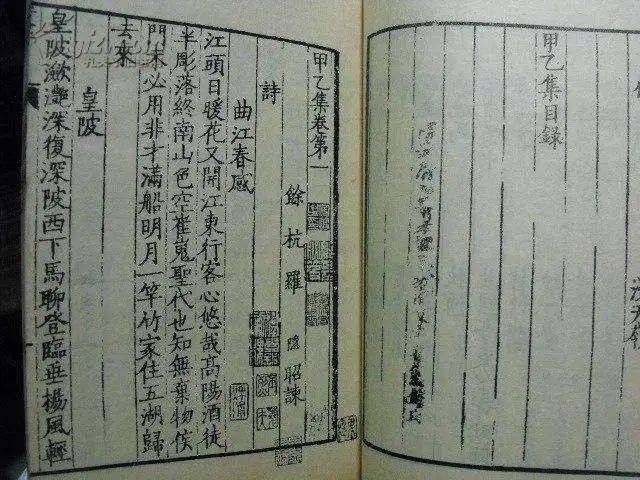 甲乙集目録
甲乙集卷第一
餘杭羅 隱 昭諫
詩
曲江春感
江頭日暖花又開江東行客心悠哉高陽酒徒
半彫落終南山色空崔嵬聖代也知無棄物侯
門未必用非才滿船明月一竿竹家住五湖歸
去來
皇陂
皇陂瀲灩深復深陂西下馬聊登臨垂楊風輕